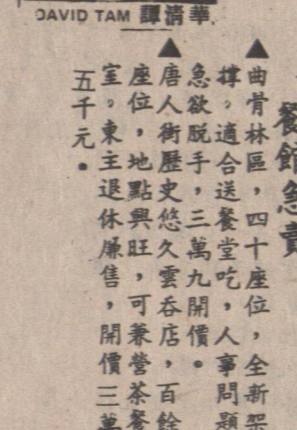 DAVID TAM 譚清華
餐館急賣
▲曲骨林區,四十座位,全新架
撑。適合送餐堂吃,人事問題
急欲脫手,三萬九開價。
▲唐人街歷史悠久雲吞店,百餘
座位,地點興旺,可兼營茶餐
室。東主退休廉售,開價三萬
五千元。